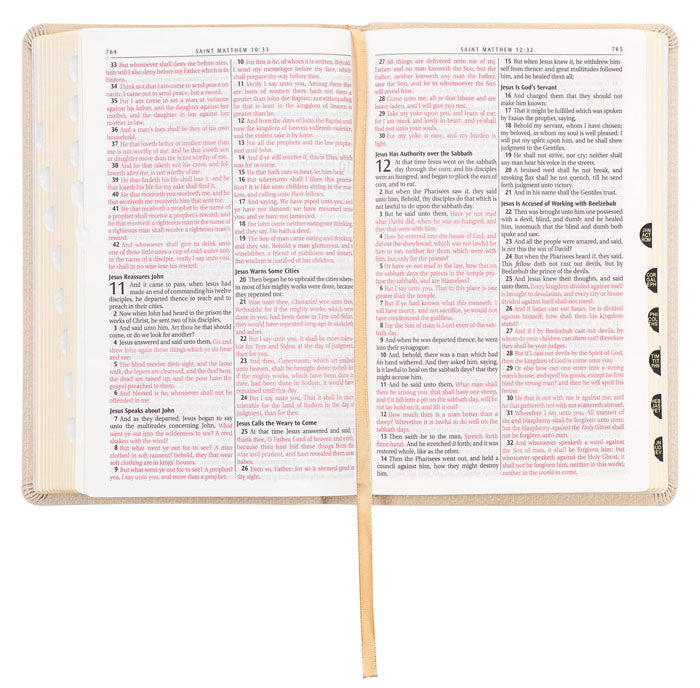 764
SAINT MATTHEW 10:33
33 But whosoever shall deny me before men,
him will I also deny before my Father which is in
heaven.
34 Think not that I am come to send peace on
earth: I came not to send peace, but a sword.
35 For I am come to set a man at variance
against his father, and the daughter against her
mother, and the daughter in law against her
mother in law.
36 And a man's foes shall be they of his own
household.
37 He that loveth father or mother more than
me is not worthy of me: and he that loveth son
or daughter more than me is not worthy of me.
38 And he that taketh not his cross, and fol-
loweth after me, is not worthy of me.
39 He that findeth his life shall lose it: and he
that loseth his life for my sake shall find it.
40 He that receiveth you receiveth me, and he
that receiveth me receiveth him that sent me.
41 He that receiveth a prophet in the name of
a prophet shall receive a prophet's reward; and he
that receiveth a righteous man in the name of
a righteous man shall receive a righteous man's
reward.
42 And whosoever shall give to drink unto
one of these little ones a cup of cold water only
in the name of a disciple, verily I say unto you,
he shall in no wise lose his reward.
Jesus Reassures John
11 And it came to pass, when Jesus had
made an end of commanding his twelve
disciples, he departed thence to teach and to
preach in their cities.
2 Now when John had heard in the prison the
works of Christ, he sent two of his disciples,
3 And said unto him, Art thou he that should
come, or do we look for another?
4 Jesus answered and said unto them, Go and
shew John again those things which ye do hear
and see:
5 The blind receive their sight, and the lame
walk, the lepers are cleansed, and the deaf hear,
the dead are raised up, and the poor have the
gospel preached to them.
6 And blessed is he, whosoever shall not be
offended in me.
Jesus Speaks about John
7 And as they departed, Jesus began to say
unto the multitudes concerning John, What
went ye out into the wilderness to see? A reed
shaken with the wind?
8 But what went ye out for to see? A man
clothed in soft raiment? behold, they that wear
soft clothing are in kings' houses.
9 But what went ye out for to see? A prophet?
yea, I say unto you, and more than a prophet.
10 For this is he, of whom it is written, Behold,
I send my messenger before thy face, which
shall prepare thy way before thee.
11 Verily I say unto you, Among them that
are born of women there hath not risen a
greater than John the Baptist: notwithstanding
he that is least in the kingdom of heaven is
greater than he.
12 And from the days of John the Baptist until
now the kingdom of heaven suffereth violence,
and the violent take it by force.
13 For all the prophets and the law prophe-
sied until John.
14 And if ye will receive it, this is Elias, which
was for to come.
15 He that hath ears to hear, let him hear.
16 But whereunto shall I liken this genera-
tion? It is like unto children sitting in the mar-
kets, and calling unto their fellows,
17 And saying, We have piped unto you, and
ye have not danced; we have mourned unto
you, and ye have not lamented.
18 For John came neither eating nor drinking,
and they say, He hath a devil.
19 The Son of man came eating and drinking,
and they say, Behold a man gluttonous, and a
winebibber, a friend of publicans and sinners.
But wisdom is justified of her children.
Jesus Warns Some Cities
20 Then began he to upbraid the cities where-
in most of his mighty works were done, because
they repented not:
21 Woe unto thee, Chorazin! woe unto thee,
Bethsaida! for if the mighty works, which were
done in you, had been done in Tyre and Sidon,
they would have repented long ago in sackcloth
and ashes.
22 But I say unto you, It shall be more tolera-
ble for Tyre and Sidon at the day of judgment,
than for you.
23 And thou, Capernaum, which art exalted
unto heaven, shalt be brought down to hell: for
if the mighty works, which have been done in
thee, had been done in Sodom, it would have
remained until this day.
24 But I say unto you, That it shall be more
tolerable for the land of Sodom in the day of
judgment, than for thee.
Jesus Calls the Weary to Come
25 At that time Jesus answered and said, I
thank thee, O Father, Lord of heaven and earth,
because thou hast hid these things from the
wise and prudent, and hast revealed them unto
babes.
26 Even so, Father: for so it seemed good in
thy sight.
SAINT MATTHEW 12:32
765
27 All things are delivered unto me of my
Father: and no man knoweth the Son, but the
Father; neither knoweth any man the Father,
save the Son, and he to whomsoever the Son
will reveal him.
28 Come unto me, all ye that labour and are
heavy laden, and I will give you rest.
29 Take my yoke upon you, and learn of me;
for I am meek and lowly in heart: and ye shall
find rest unto your souls.
30 For my yoke is easy, and my burden is
light.
Jesus Has Authority over the Sabbath
12 At that time Jesus went on the sabbath
day through the corn; and his disciples
were an hungred, and began to pluck the ears of
corn, and to eat.
2 But when the Pharisees saw it, they said
unto him, Behold, thy disciples do that which is
not lawful to do upon the sabbath day.
3 But he said unto them, Have ye not read
what David did, when he was an hungred, and
they that were with him;
4 How he entered into the house of God, and
did eat the shewbread, which was not lawful for
him to eat, neither for them which were with
him, but only for the priests?
5 Or have ye not read in the law, how that on
the sabbath days the priests in the temple pro-
fane the sabbath, and are blameless?
6 But I say unto you, That in this place is one
greater than the temple.
7 But if ye had known what this meaneth, I
will have mercy, and not sacrifice, ye would not
have condemned the guiltless.
8 For the Son of man is Lord even of the sab-
bath day.
9 And when he was departed thence, he went
into their synagogue:
10 And, behold, there was a man which had
his hand withered. And they asked him, saying,
Is it lawful to heal on the sabbath days? that they
might accuse him.
11 And he said unto them, What man shall
there be among you, that shall have one sheep,
and if it fall into a pit on the sabbath day, will he
not lay hold on it, and lift it out?
12 How much then is a man better than a
sheep? Wherefore it is lawful to do well on the
sabbath days.
13 Then saith he to the man, Stretch forth
thine hand. And he stretched it forth; and it was
restored whole, like as the other.
14 Then the Pharisees went out, and held a
council against him, how they might destroy
him.
15 But when Jesus knew it, he withdrew him-
self from thence: and great multitudes followed
him, and he healed them all;
Jesus Is God's Servant
16 And charged them that they should not
make him known:
17 That it might be fulfilled which was spoken
by Esaias the prophet, saying,
18 Behold my servant, whom I have chosen;
my beloved, in whom my soul is well pleased: I
will put my spirit upon him, and he shall shew
judgment to the Gentiles.
19 He shall not strive, nor cry; neither shall
any man hear his voice in the streets.
20 A bruised reed shall he not break, and
smoking flax shall he not quench, till he send
forth judgment unto victory.
21 And in his name shall the Gentiles trust.
Jesus Is Accused of Working with Beelzebub
22 Then was brought unto him one possessed
with a devil, blind, and dumb: and he healed
him, insomuch that the blind and dumb both
spake and saw.
23 And all the people were amazed, and said,
Is not this the son of David?
24 But when the Pharisees heard it, they said,
This fellow doth not cast out devils, but by
Beelzebub the prince of the devils.
25 And Jesus knew their thoughts, and said
unto them, Every kingdom divided against itself
is brought to desolation; and every city or house
divided against itself shall not stand:
26 And if Satan cast out Satan, he is divided
against himself; how shall then his kingdom
stand?
27 And if I by Beelzebub cast out devils, by
whom do your children cast them out? therefore
they shall be your judges.
28 But if I cast out devils by the Spirit of God,
then the kingdom of God is come unto you.
29 Or else how can one enter into a strong
man's house, and spoil his goods, except he first
bind the strong man? and then he will spoil his
house.
30 He that is not with me is against me; and
he that gathereth not with me scattereth abroad.
31 Wherefore I say unto you, All manner of
sin and blasphemy shall be forgiven unto men:
but the blasphemy against the Holy Ghost shall
not be forgiven unto men.
32 And whosoever speaketh a word against
the Son of man, it shall be forgiven him: but
whosoever speaketh against the Holy Ghost, it
shall not be forgiven him, neither in this world,
neither in the world to come.
JHN
ACT
ROM
COR
GAL
EPH
PHI
COL
THS
TIM
TIT
PHN